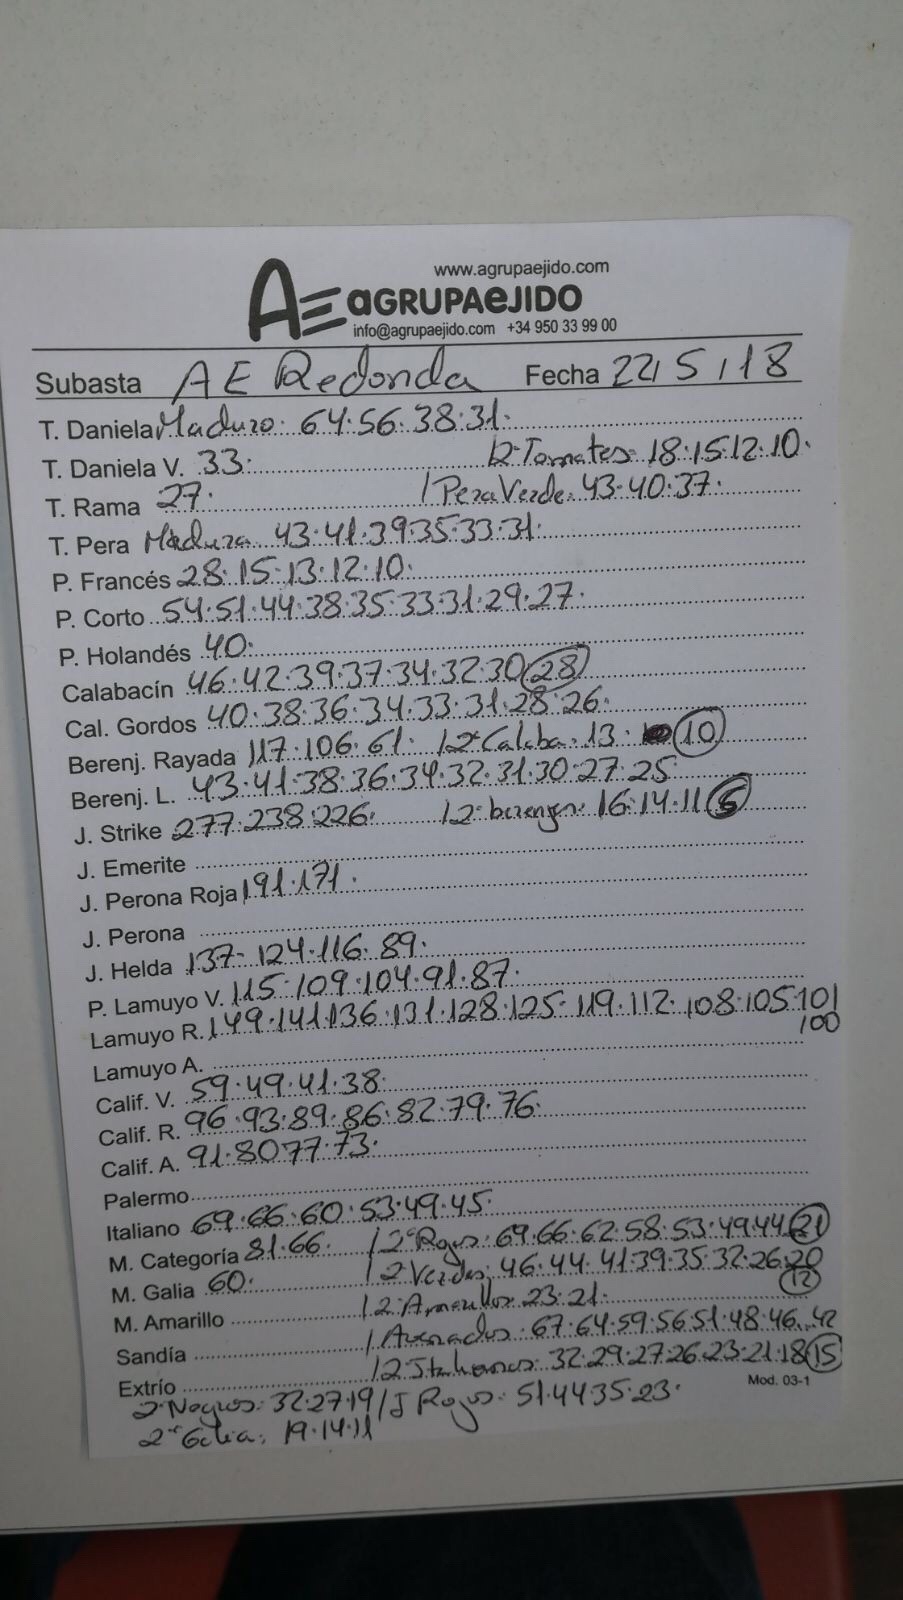 www.agrupaejido.com
AE aGRUPAeJIDO
info@agrupaejido.com +34 950 33 99 00
Subasta AE Redonda Fecha 22/5/18
T. Daniela Maduro: 64.56.38.31.
T. Daniela V. 33. /2ª Tomates: 18.15.12.10.
T. Rama 27. / Pera Verde: 43.40.37.
T. Pera Madura 43.41.39.35.33.31.
P. Francés 28.15.13.12.10.
P. Corto 54.51.44.38.35.33.31.29.27.
P. Holandés 40.
Calabacín 46.42.39.37.34.32.30 28
Cal. Gordos 40.38.36.34.33.31.28.26.
Berenj. Rayada 117.106.61. /2ª Calaba. 13. 10
Berenj. L. 43.41.38.36.34.32.31.30.27.25
J. Strike 277.238.226. /2ª berenjes: 16.14.11
J. Emerite
J. Perona Roja 191.171.
J. Perona
J. Helda 137-124.116.89.
P. Lamuyo V. 115.109.104.91.87.
Lamuyo R. 149.141.136.131.128.125.119.112.108.105.101
100
Lamuyo A.
Calif. V. 59.49.41.38.
Calif. R. 96.93.89.86.82.79.76.
Calif. A. 91.80.77.73.
Palermo
Italiano 69.66.60.53.49.45.
M. Categoría 81.66. /2º Rojos: 69.66.62.58.53.49.44. 21
M. Galia 60. /2 Verdes: 46.44.41.39.35.32.26.20
12
M. Amarillo /2ª Amarillos: 23.21.
Sandía / Asurados: 67.64.59.56.51.48.46.42
Extrío /2 Italianos: 32.29.27.26.23.21.18 15
Mod. 03-1
2 Negros: 32.27.19 / J Rojos: 51.44.35.23.
2ª Galia: 19.14.11